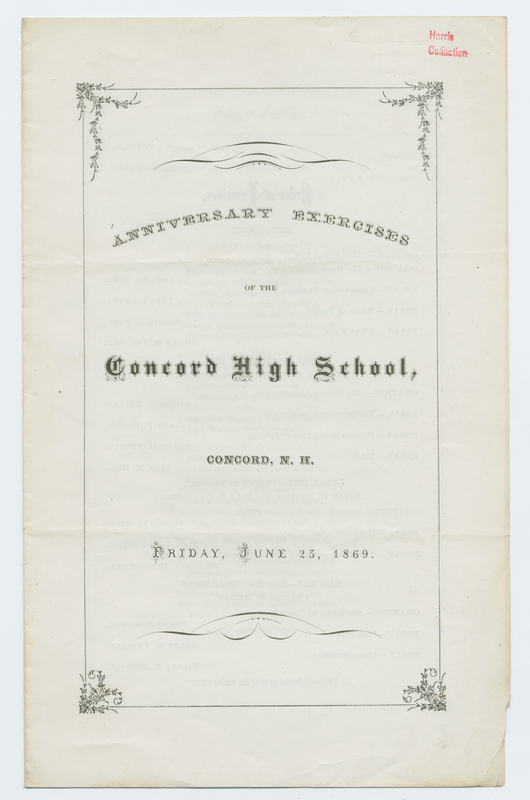 Harris
Collection
ANNIVERSARY EXERCISES
OF THE
Concord High School,
CONCORD, N. H.
FRIDAY, JUNE 25, 1869.